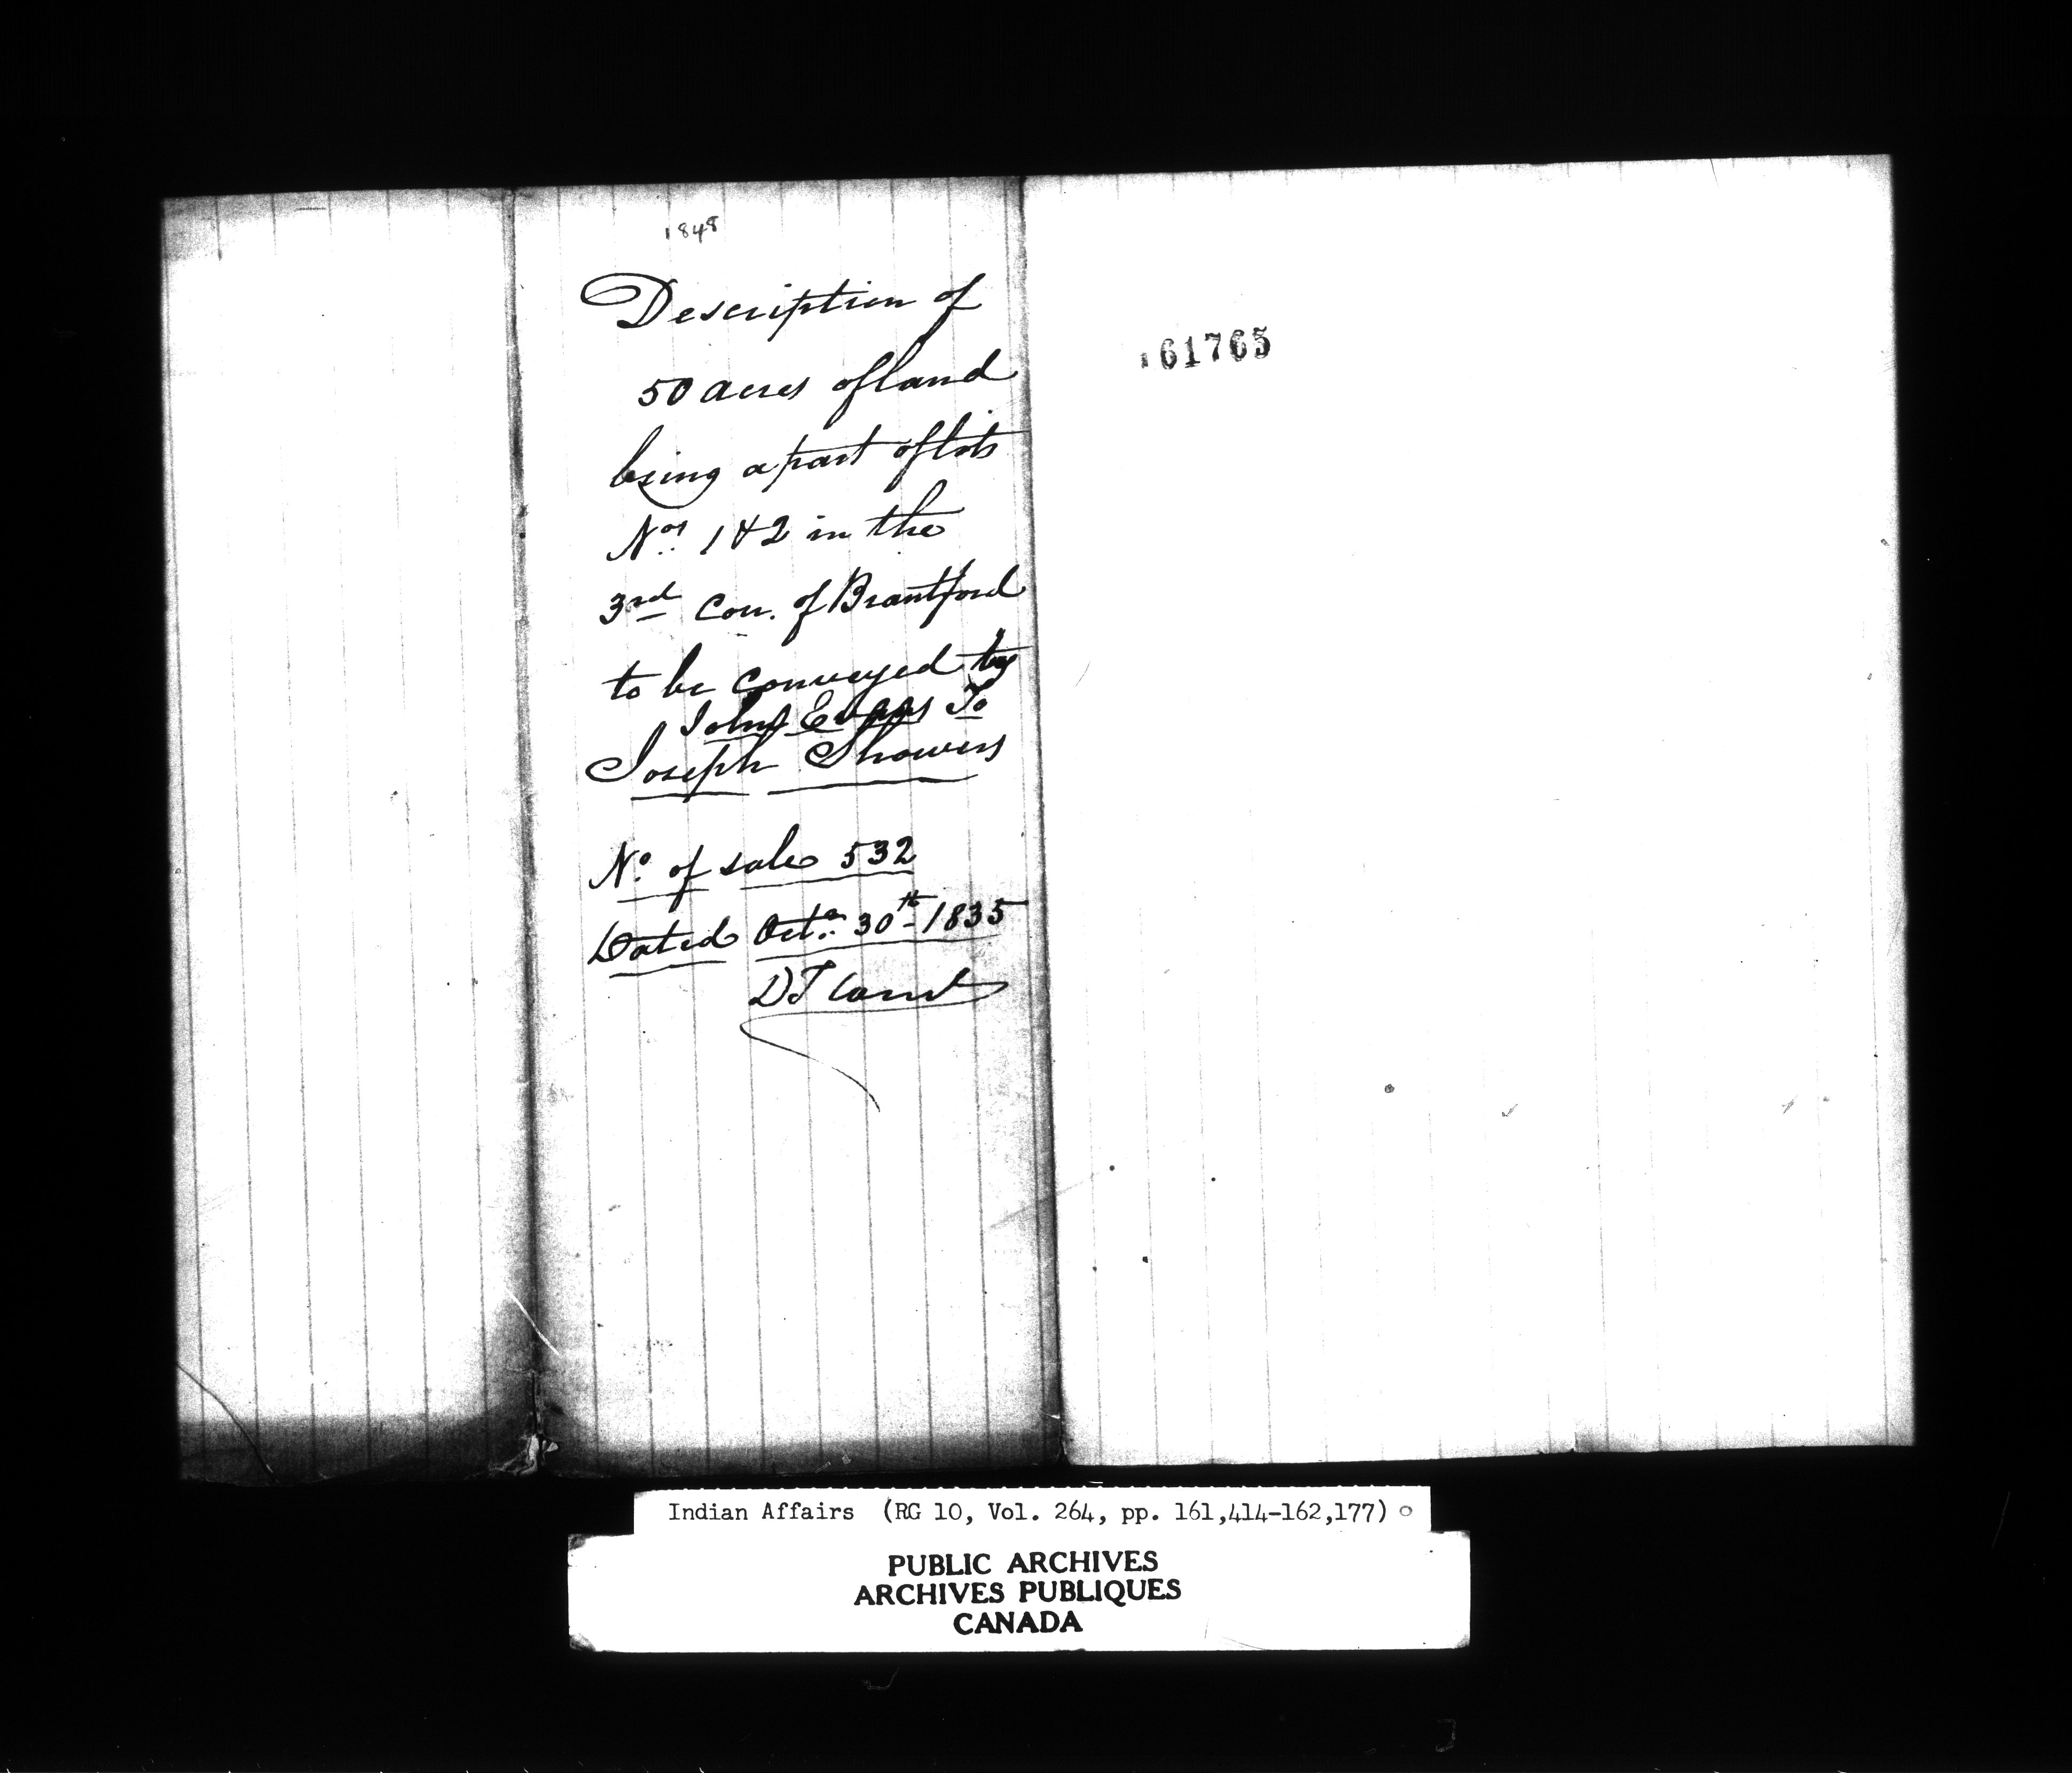 1848
Description of
50 acres of land
being a part of lots
Nos. 1 & 2 in the
3rd Con. of Brantford
to be conveyed by
John Evans To
Joseph Showers
No. of sale 532
Dated Octr. 30th 1835
161765
Indian Affairs (RG 10, Vol. 264, pp. 161,414-162,177)
PUBLIC ARCHIVES
ARCHIVES PUBLIQUES
CANADA